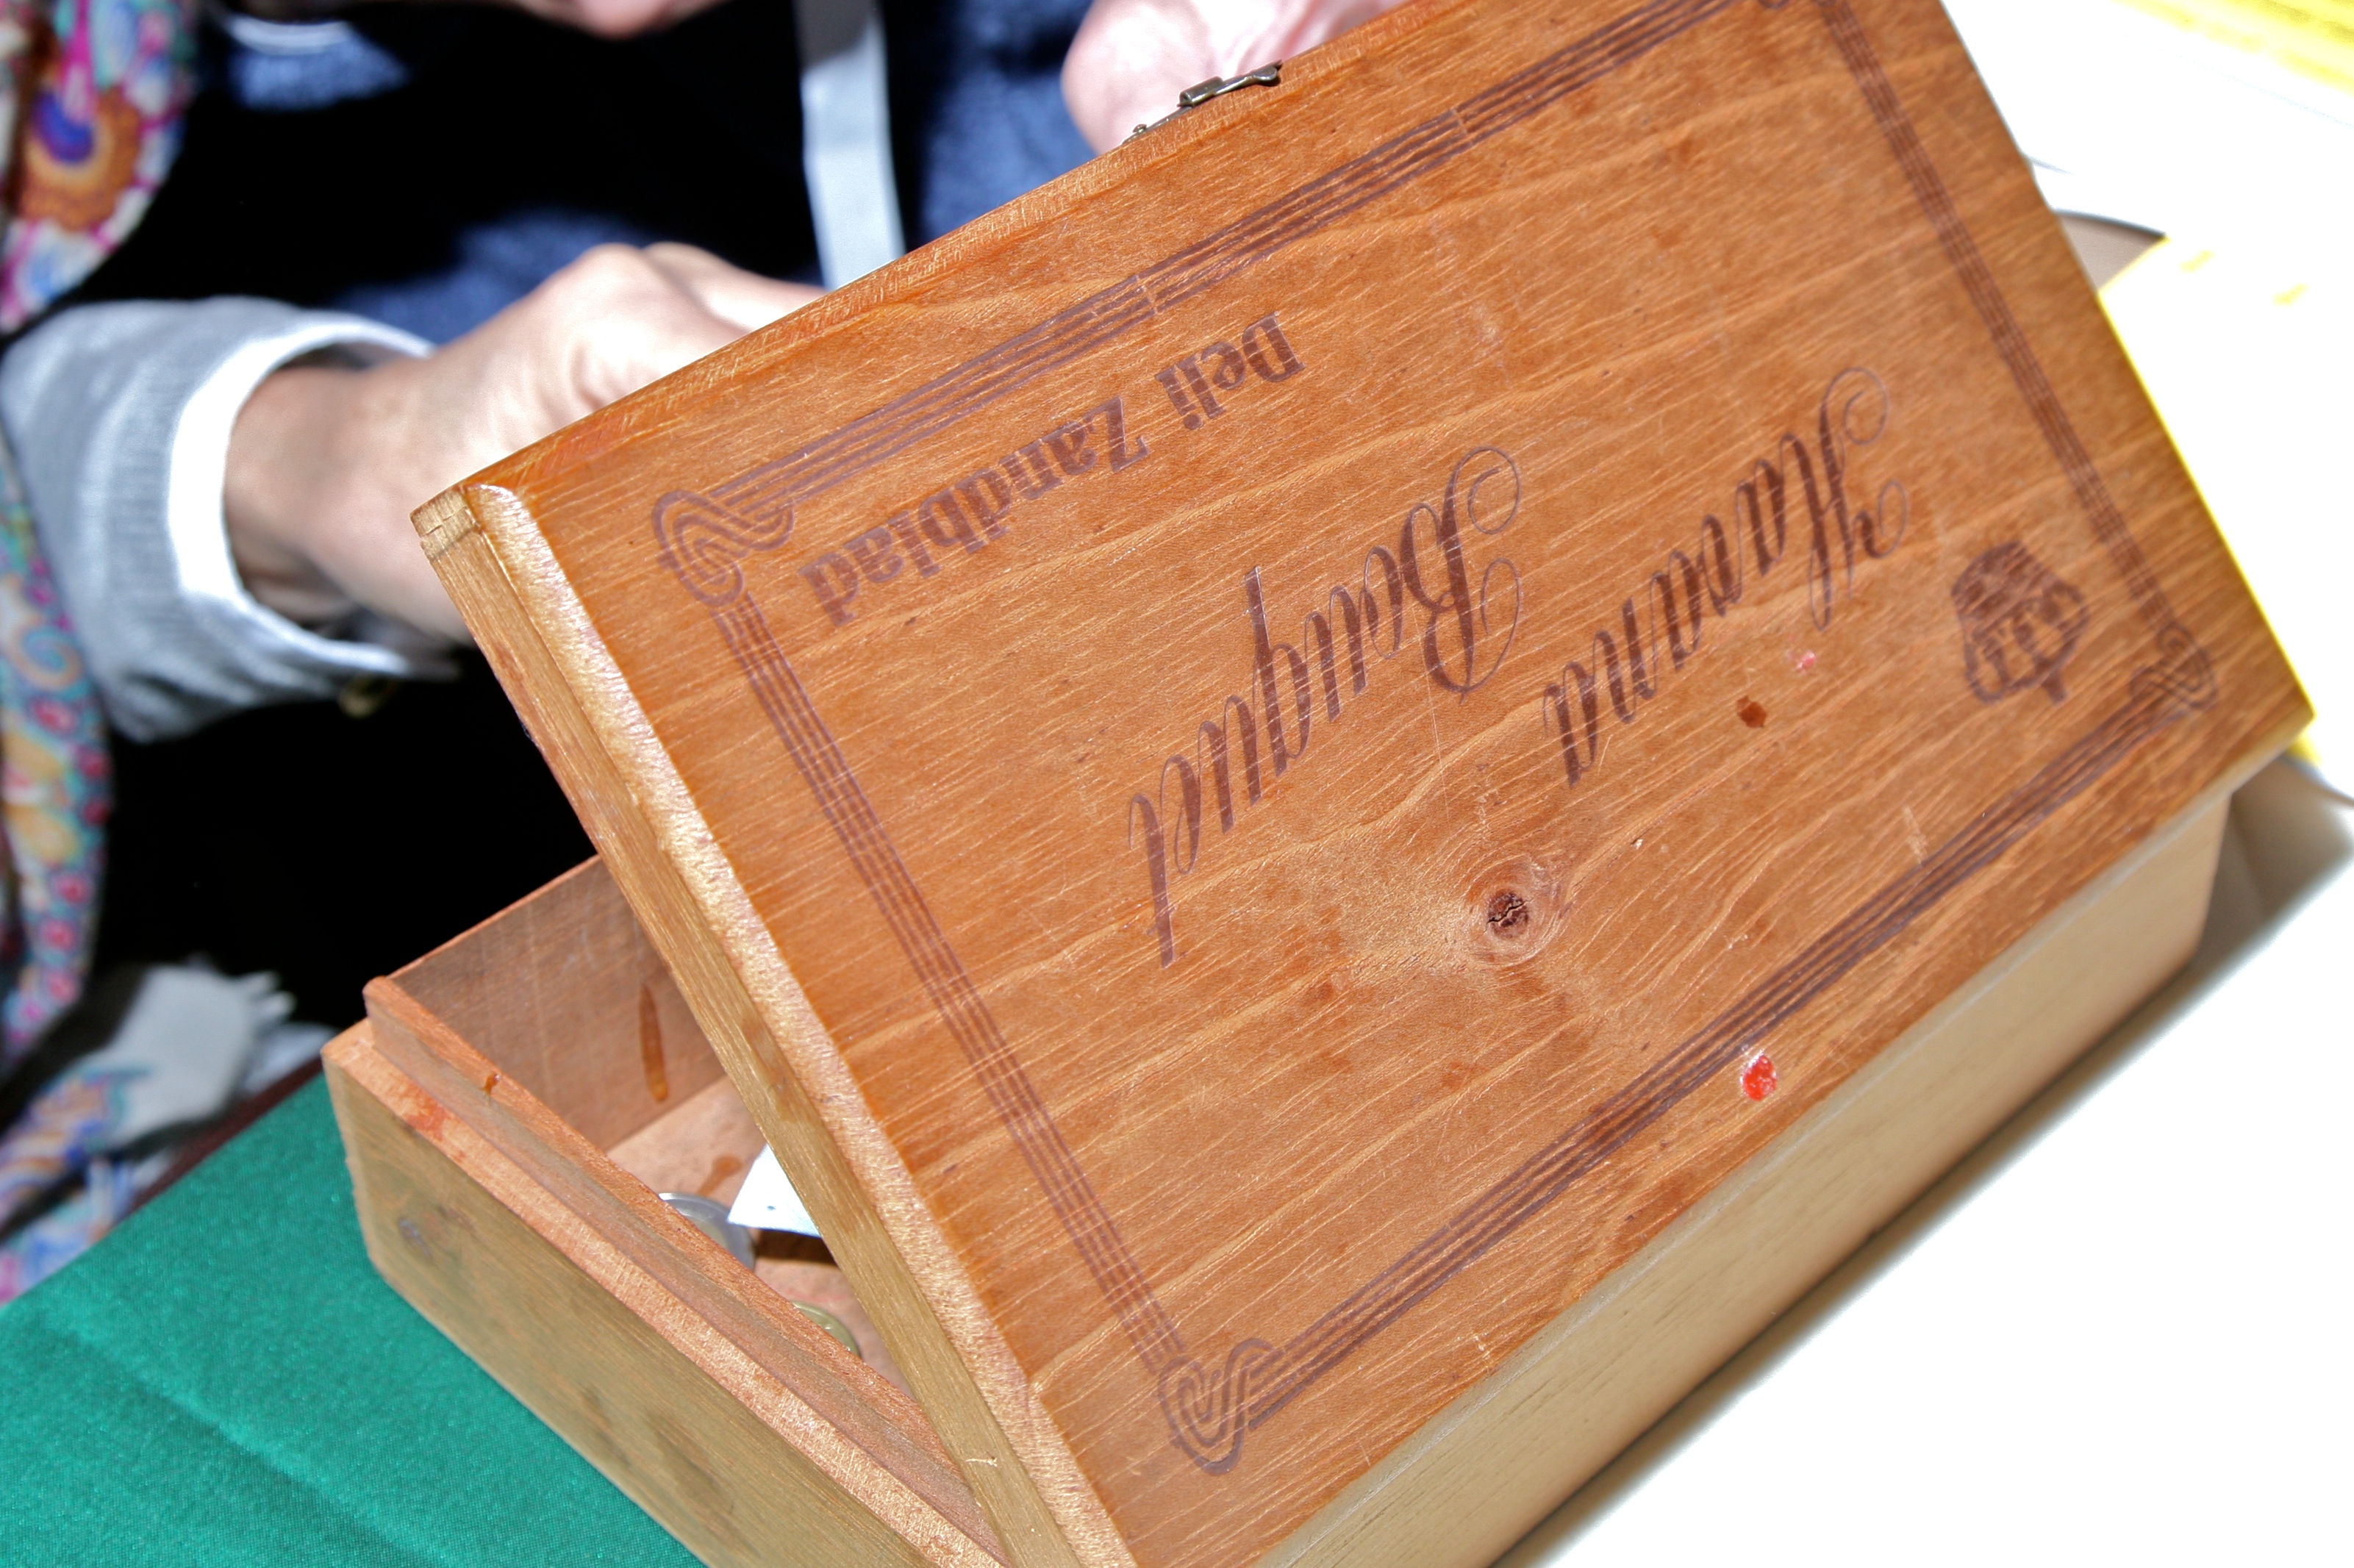 Havana
Bouquet
Deli Zandblad